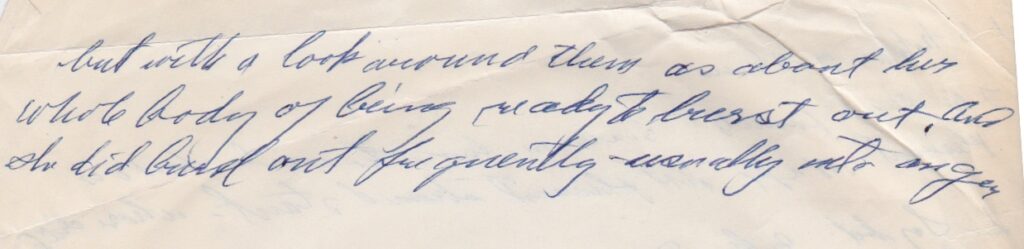 but with a look around them as about her
whole body of being ready to burst out. And
she did burst out frequently - usually into anger